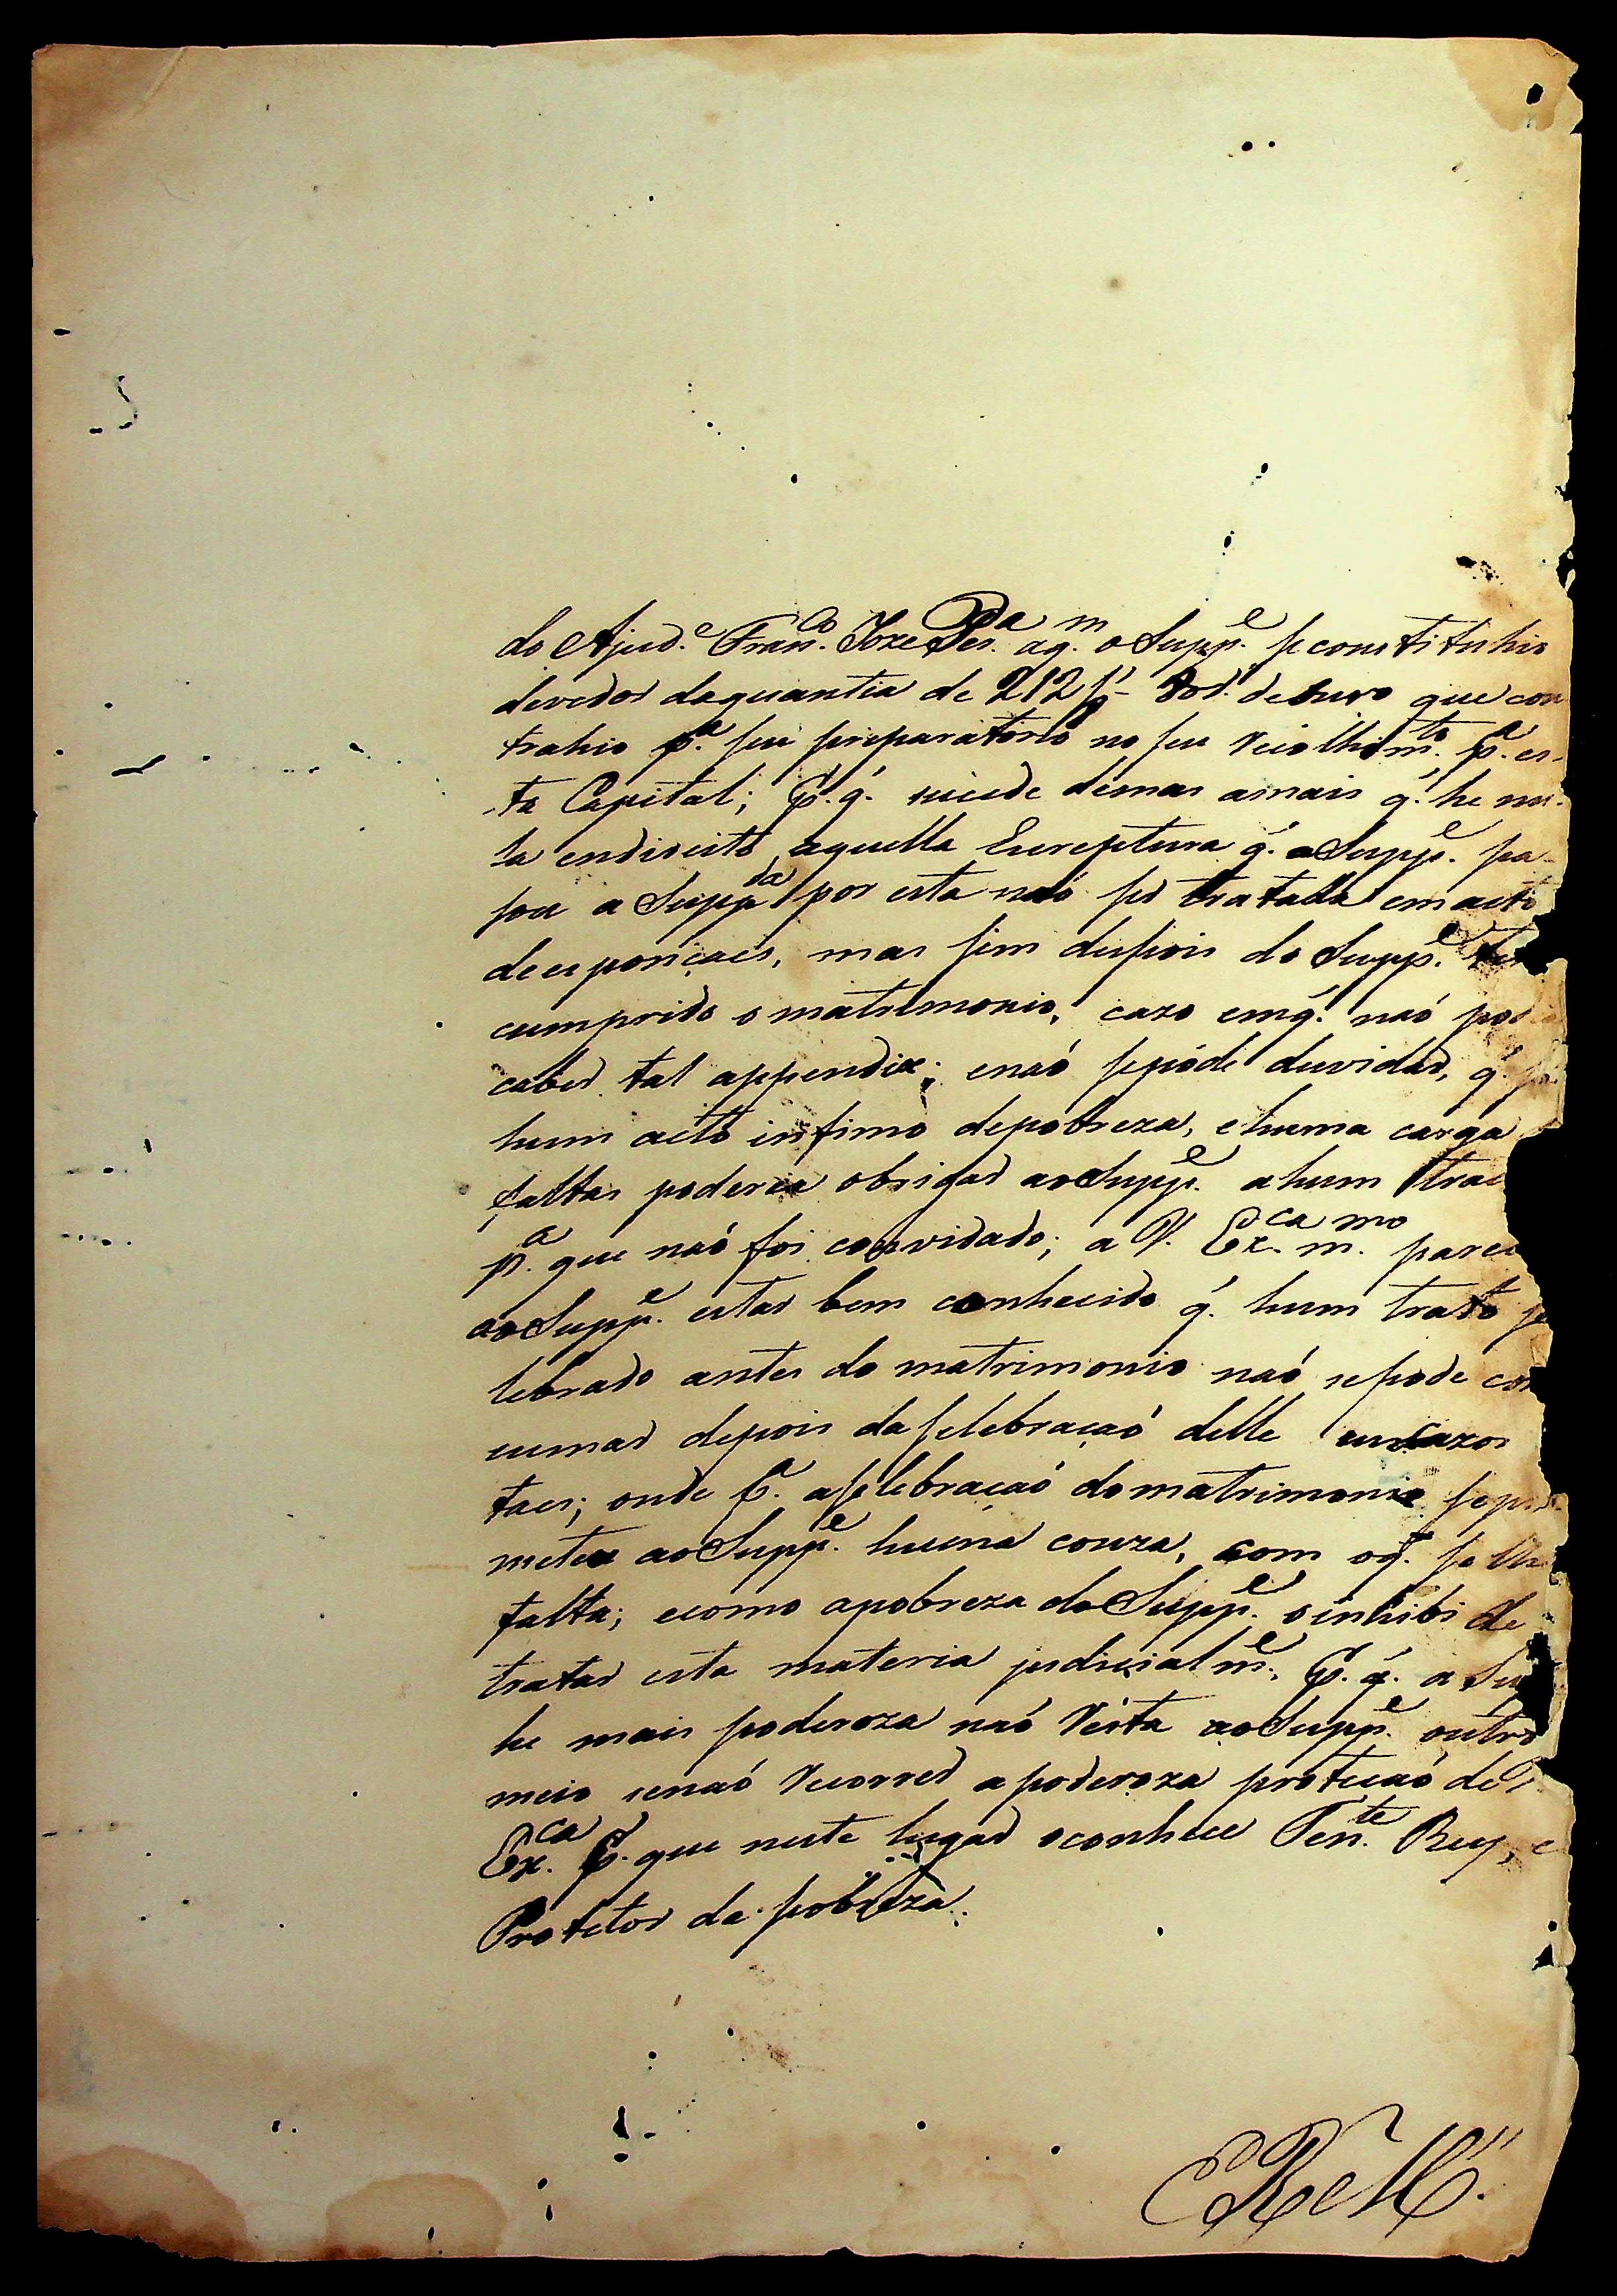 do Ajud.e Fran.co Joze Per.a aq.m o Supp.e se constituhio
devedor daquantia de 212$ de que con
trahio p.a seu preparatorio no seu recolhim.to p.a es-
ta Capital; P. q. sucede demas amais q. he nu-
la endireito aquella Escreptura q. o Supp.e pa-
sou a Supp.da por esta naó ser tratada em acto
de esponçaes, mas sim depois do Supp.e ter
cumprido o matrimonio, cazo emq. naó podia
caber tal appendix; enaó sepóde duvidar, q.
hum acto infimo depobreza, ehuma carga
faltas poderia obrigar aoSupp.e ahum trac
p.a que naó foi convidado; a V. Ex.ca m.mo parec
aoSupp.e estar bem conhecido q. hum trato se
lebrado antes do matrimonio naó sepode con
sumar depois da selebraçaó delle emcazos
taes; onde P.a aselebraçaó do matrimonio sepro
meteo aoSupp.e huma couza, com oq. se lhe
falta; ecomo apobreza do Supp.e o inhibi de
tratar esta materia judicialm.e, P. q. a Su
he mais poderoza naó resta aoSupp.e outro
meio senaó recorrer apoderoza proteçaó de V.
Ex.ca P. que neste lugar oconhece Ten.te Rey, e
Protetor da pobreza.
E R e M.